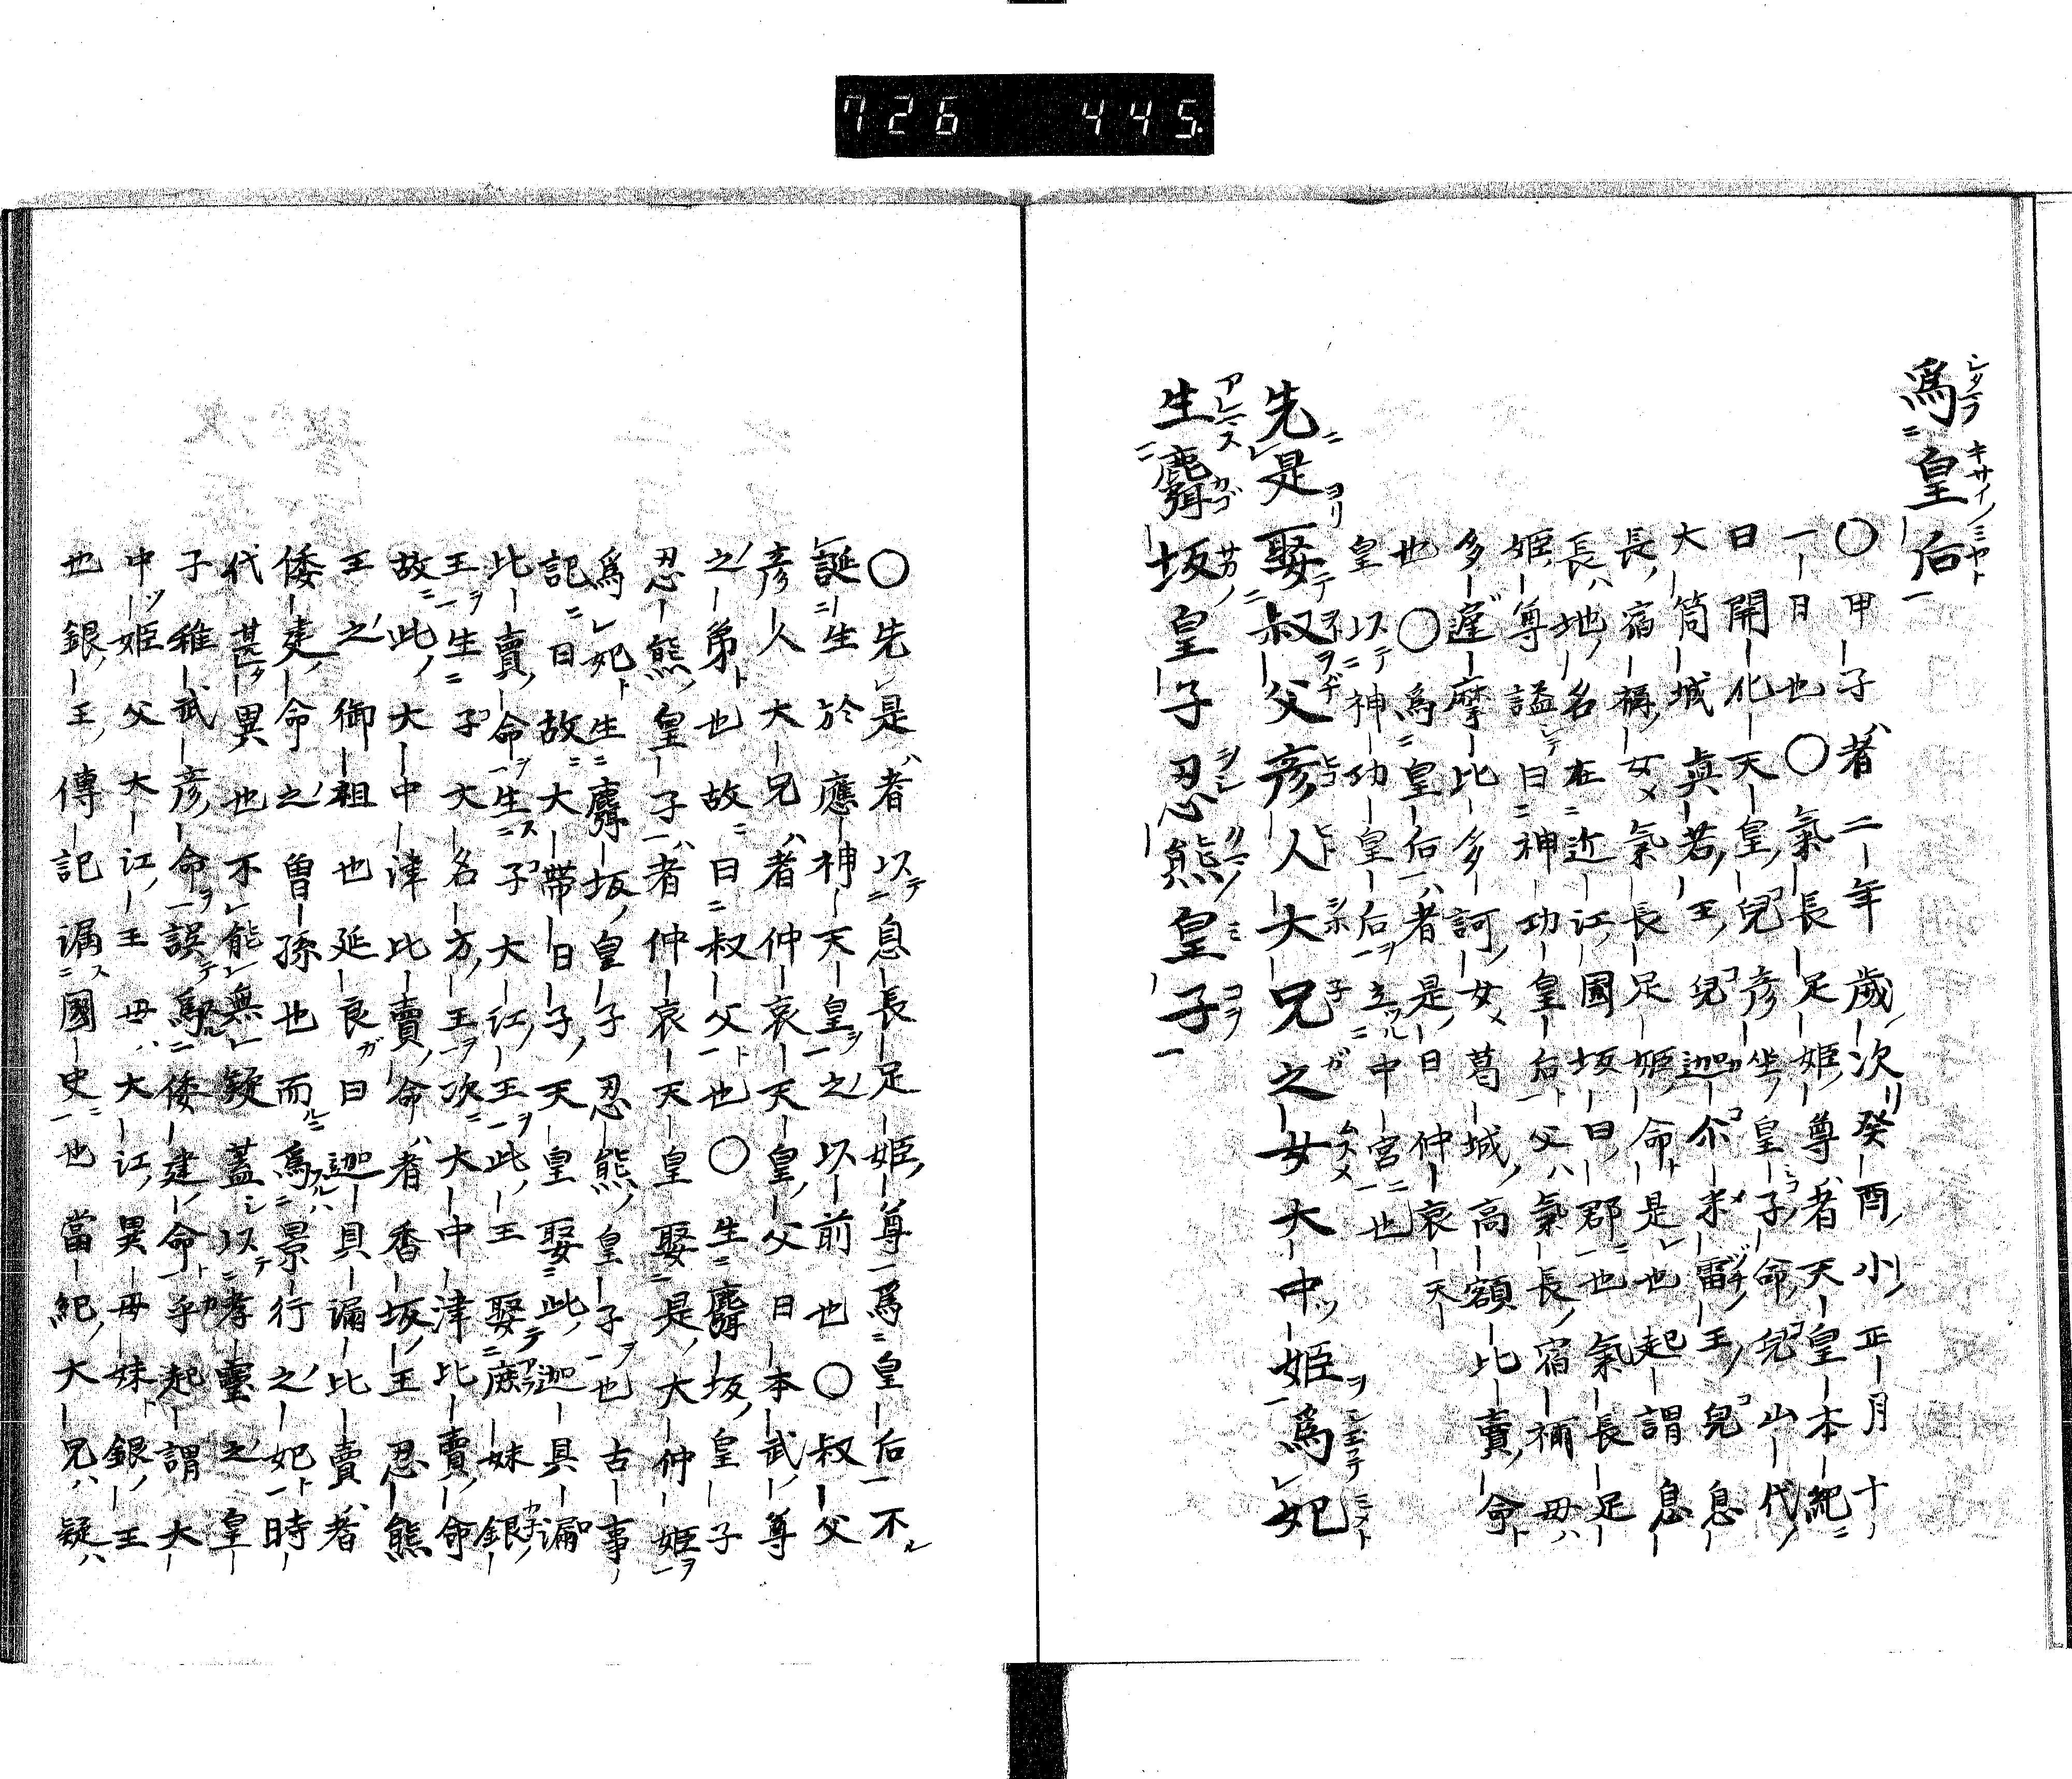 726 445
爲皇后
〇甲子者二年歳次癸酉小正月十
一日也〇氣長足姫尊者天皇本紀
日開化天皇兒彦坐皇子命兒山代
大筒城眞若王兒迦尒米雷王兒息
長宿禰女氣長足姫命是也起謂息
長地名在近江國坂曰郡也氣長足
姫尊謚曰神功皇后父氣長宿禰母
多遅摩比多訶女葛城高額比賣命
也〇爲皇后者是日仲哀天
皇以神功皇后立中宮也
先是娶叔父彦人大兄之女大中姫爲妃
生麛坂皇子忍熊皇子
〇先是者以息長足姫尊爲皇后不
誕生於應神天皇之以前也〇叔父
彦人大兄者仲哀天皇父日本武尊
之弟也故曰叔父也〇生麛坂皇子
忍熊皇子者仲哀天皇娶是大仲姫
爲妃生麛坂皇子忍熊皇子也古事
記曰故大帶日子天皇娶此迦具漏
比賣命生子大江王此王娶庶妹銀
王生子大名方王次大中津比賣命
故此大中津比賣命者香坂王忍熊
王之御祖也延良曰迦具漏比賣者
倭建命之曽孫也而爲景行之妃時
代甚異也不能無疑蓋以孝靈之皇
子稚武彦命誤爲倭建命乎起謂大
中姫父大江王母大江異母妹銀王
也銀王傳記漏國史也當紀大兄疑